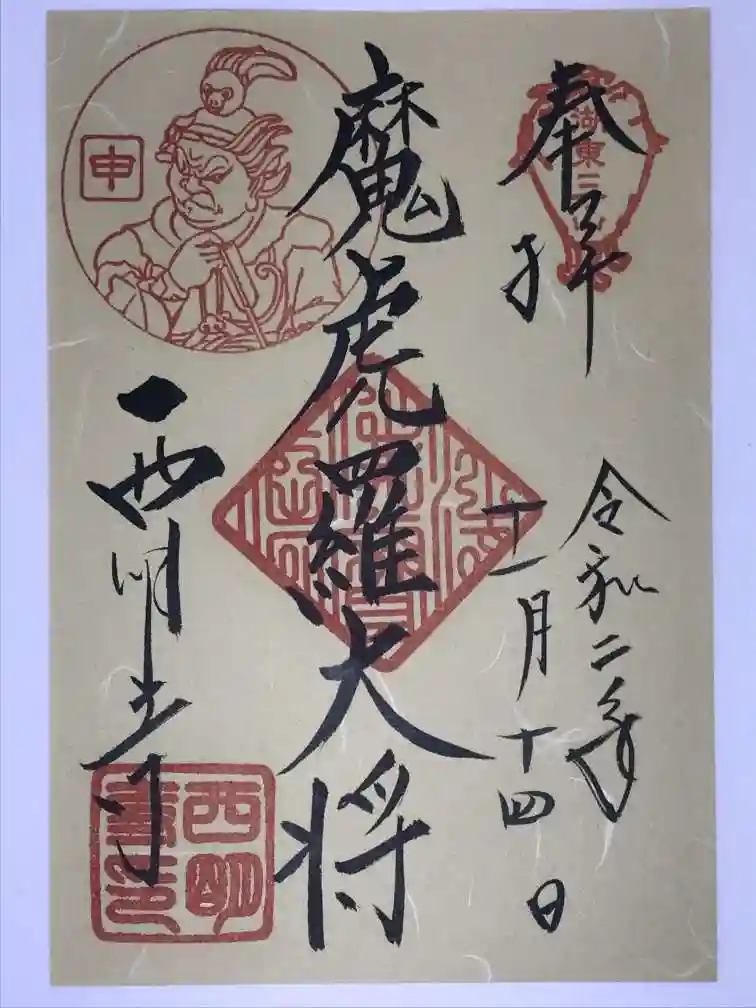 奉拝
湖東三山
令和二年
十一月十四日
魔虎羅大将
申
西明寺
西明寺印